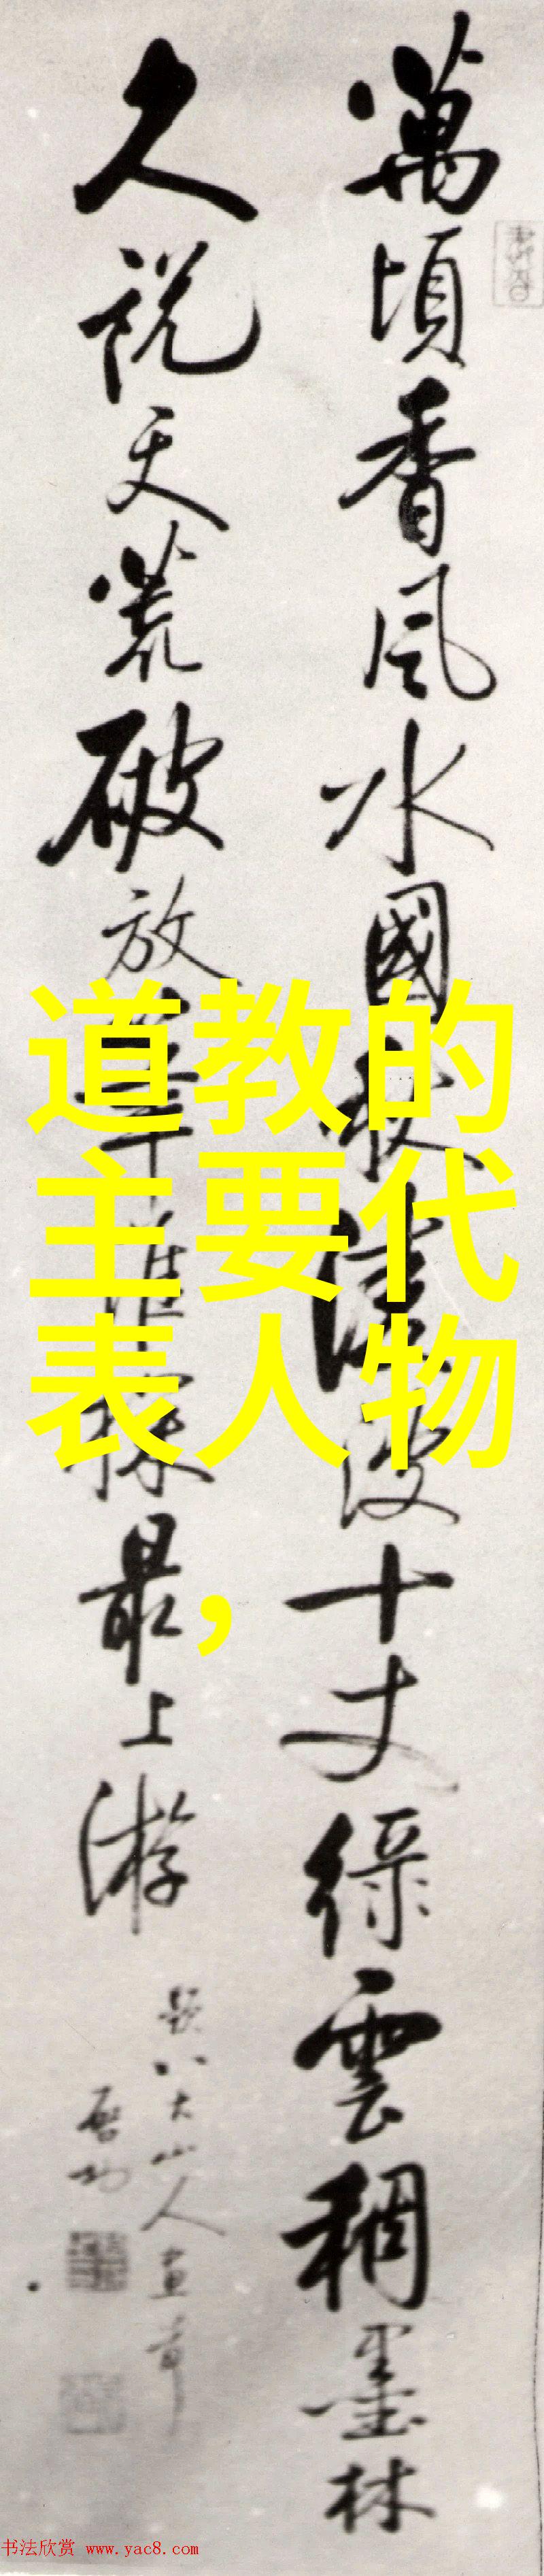 萬頃香風水國秋陂十丈綠雲稠墨林
久說天荒破放筆誰探最上游
題八大山人畫
啓功
道教的
主要代
表人物
,
书法欣赏 www.yac8.com